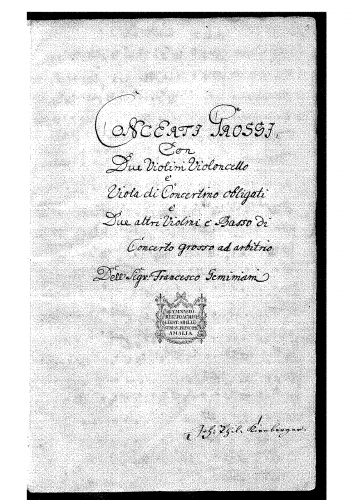 CONCERTI GROSSI,
Con
Due Violini Violoncello
e
Viola di Concertino obligati
e
Due altri Violini e Basso di
Concerto grosso ad arbitrio
Dell' Sigr. Francesco Geminiani
GYMNASIO
AMALIA
Joh. Phil. Kirnberger.